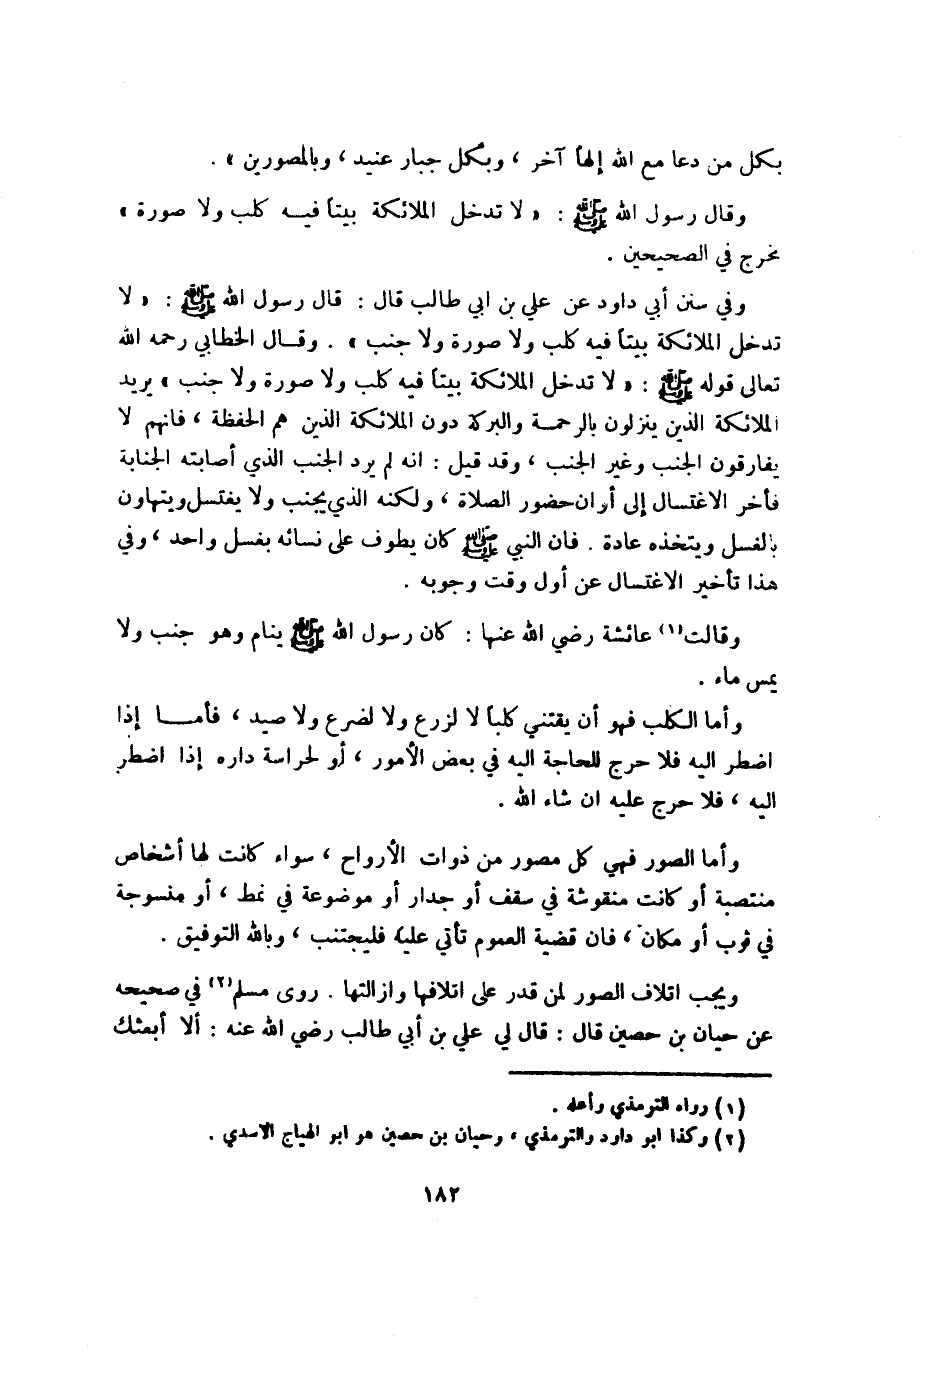 بكل من دعا مع الله إلهاً آخر ، وبكل جبار عنيد ، وبالمصورين » .
وقال رسول الله ﷺ : « لا تدخل الملائكة بيتاً فيه كلب ولا صورة »
مخرج في الصحيحين .
وفي سنن أبي داود عن علي بن ابي طالب قال : قال رسول الله ﷺ : « لا
تدخل الملائكة بيتاً فيه كلب ولا صورة ولا جنب » . وقال الخطابي رحمه الله
تعالى قوله ﷺ : « لا تدخل الملائكة بيتاً فيه كلب ولا صورة ولا جنب » يريد
الملائكة الذين ينزلون بالرحمة والبركة دون الملائكة الذين هم الحفظة ، فانهم لا
يفارقون الجنب وغير الجنب ، وقد قيل : انه لم يرد الجنب الذي أصابته الجنابة
فأخر الاغتسال إلى أوان حضور الصلاة ، ولكنه الذي يجنب ولا يغتسل ويتهاون
بالغسل ويتخذه عادة . فان النبي ﷺ كان يطوف على نسائه بغسل واحد ، وفي
هذا تأخير الاغتسال عن أول وقت وجوبه .
وقالت(١) عائشة رضي الله عنها : كان رسول الله ﷺ ينام وهو جنب ولا
يمس ماء .
وأما الكلب فهو أن يقتني كلباً لا لزرع ولا لضرع ولا صيد ، فأما إذا
اضطر اليه فلا حرج للحاجة اليه في بعض الأمور ، أو لحراسة داره إذا اضطر
اليه ، فلا حرج عليه ان شاء الله .
وأما الصور فهي كل مصور من ذوات الأرواح ، سواء كانت لها أشخاص
منتصبة أو كانت منقوشة في سقف أو جدار أو موضوعة في نمط ، أو منسوجة
في ثوب أو مكان ، فان قضية العموم تأتي عليه فليجتنب ، وبالله التوفيق .
ويجب اتلاف الصور لمن قدر على اتلافها وازالتها . روى مسلم(٢) في صحيحه
عن حيان بن حصين قال : قال لي علي بن أبي طالب رضي الله عنه : ألا أبعثك
(١) رواه الترمذي وأعله .
(٢) وكذا ابو داود والترمذي ، وحيان بن حصين هو ابو الهياج الاسدي .
١٨٢